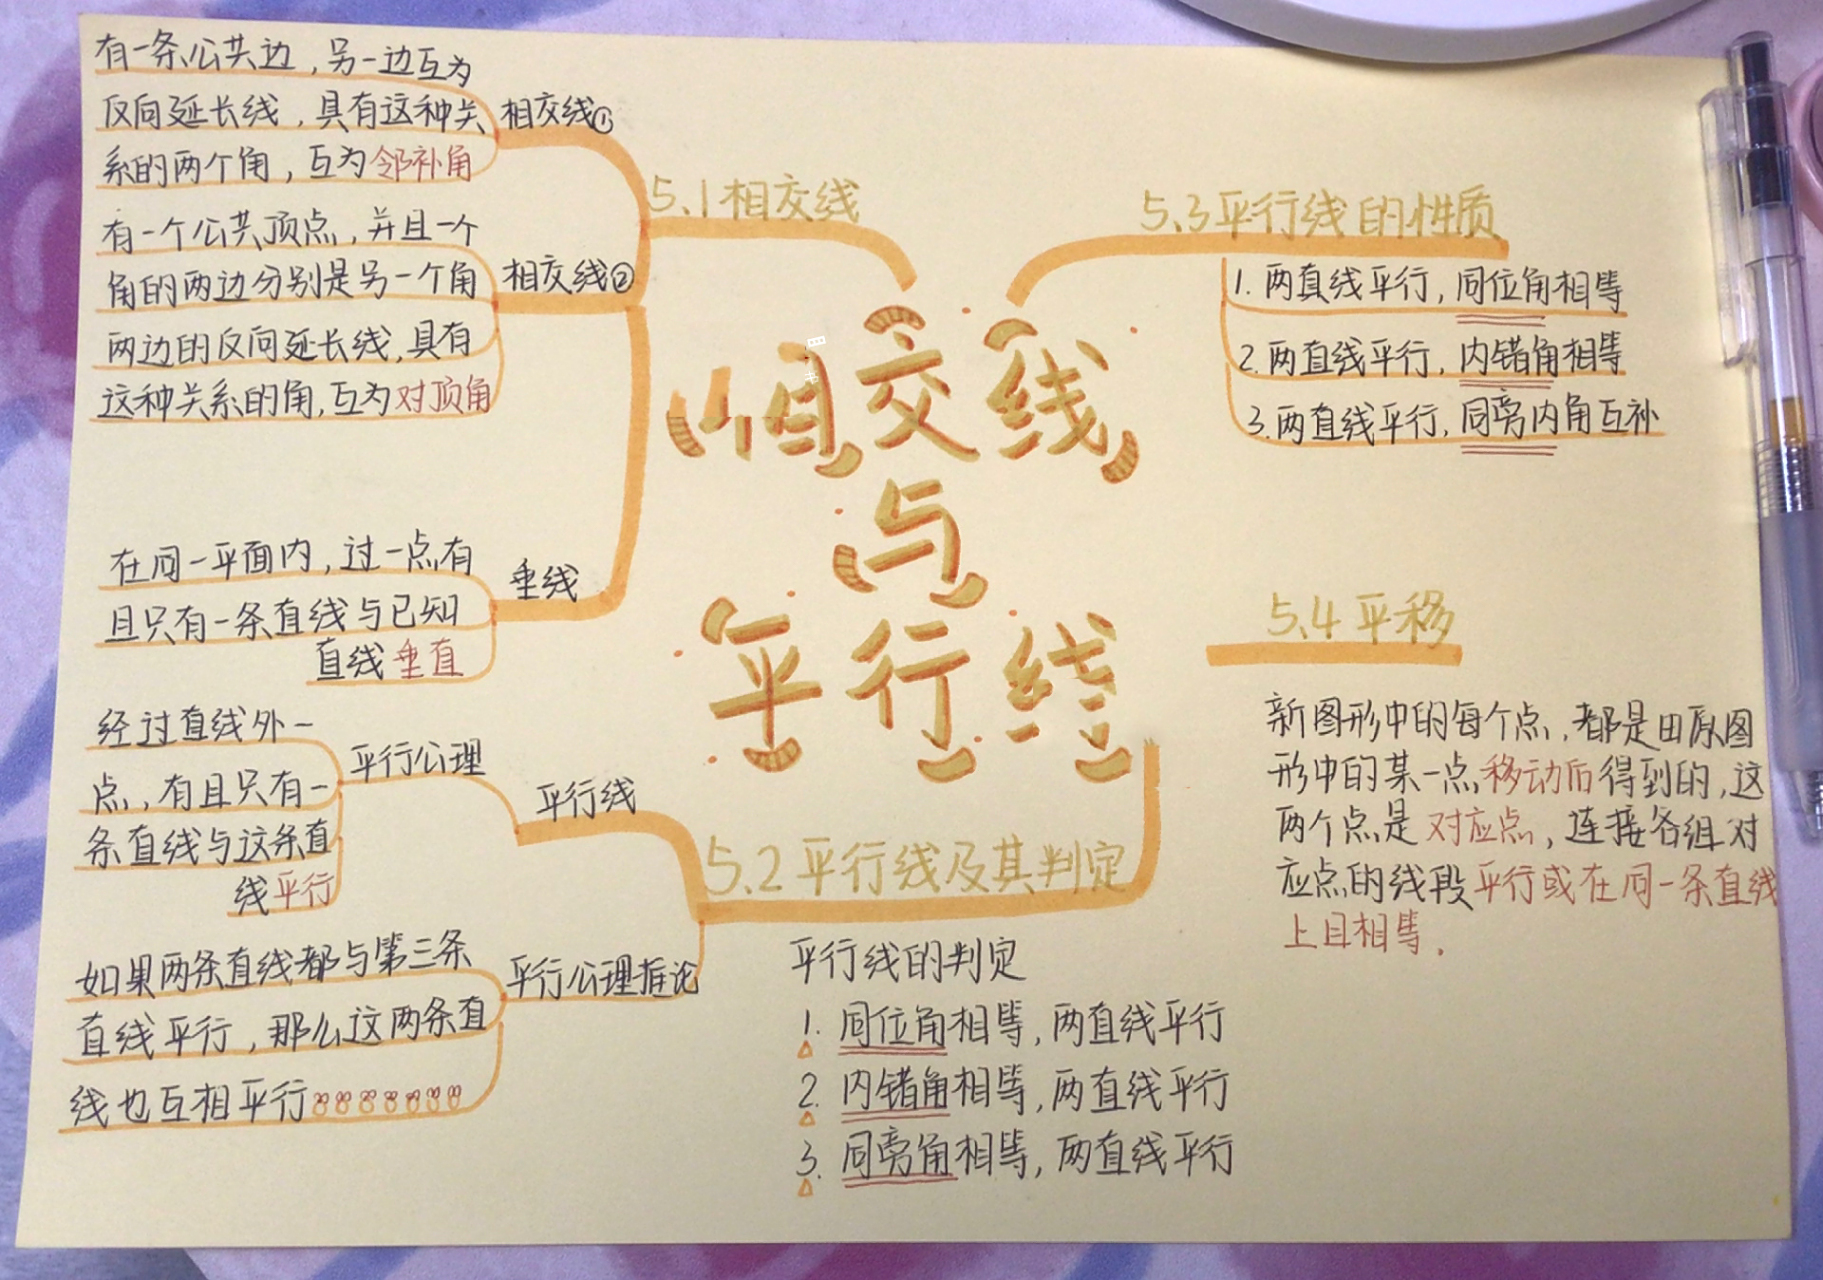 相交线
与
平行线
5.1相交线
相交线①
有一条公共边,另一边互为
反向延长线,具有这种关
系的两个角,互为邻补角
相交线②
有一个公共顶点,并且一个
角的两边分别是另一个角
两边的反向延长线,具有
这种关系的角,互为对顶角
垂线
在同一平面内,过一点有
且只有一条直线与已知
直线垂直
5.2平行线及其判定
平行线
平行公理
经过直线外一
点,有且只有一
条直线与这条直
线平行
平行公理推论
如果两条直线都与第三条
直线平行,那么这两条直
线也互相平行
平行线的判定
1. 同位角相等,两直线平行
2. 内错角相等,两直线平行
3. 同旁角相等,两直线平行
5.3平行线的性质
1.两直线平行,同位角相等
2.两直线平行,内错角相等
3.两直线平行,同旁内角互补
5.4平移
新图形中的每个点,都是由原图
形中的某一点移动后得到的,这
两个点是对应点,连接各组对
应点的线段平行或在同一条直线
上且相等.